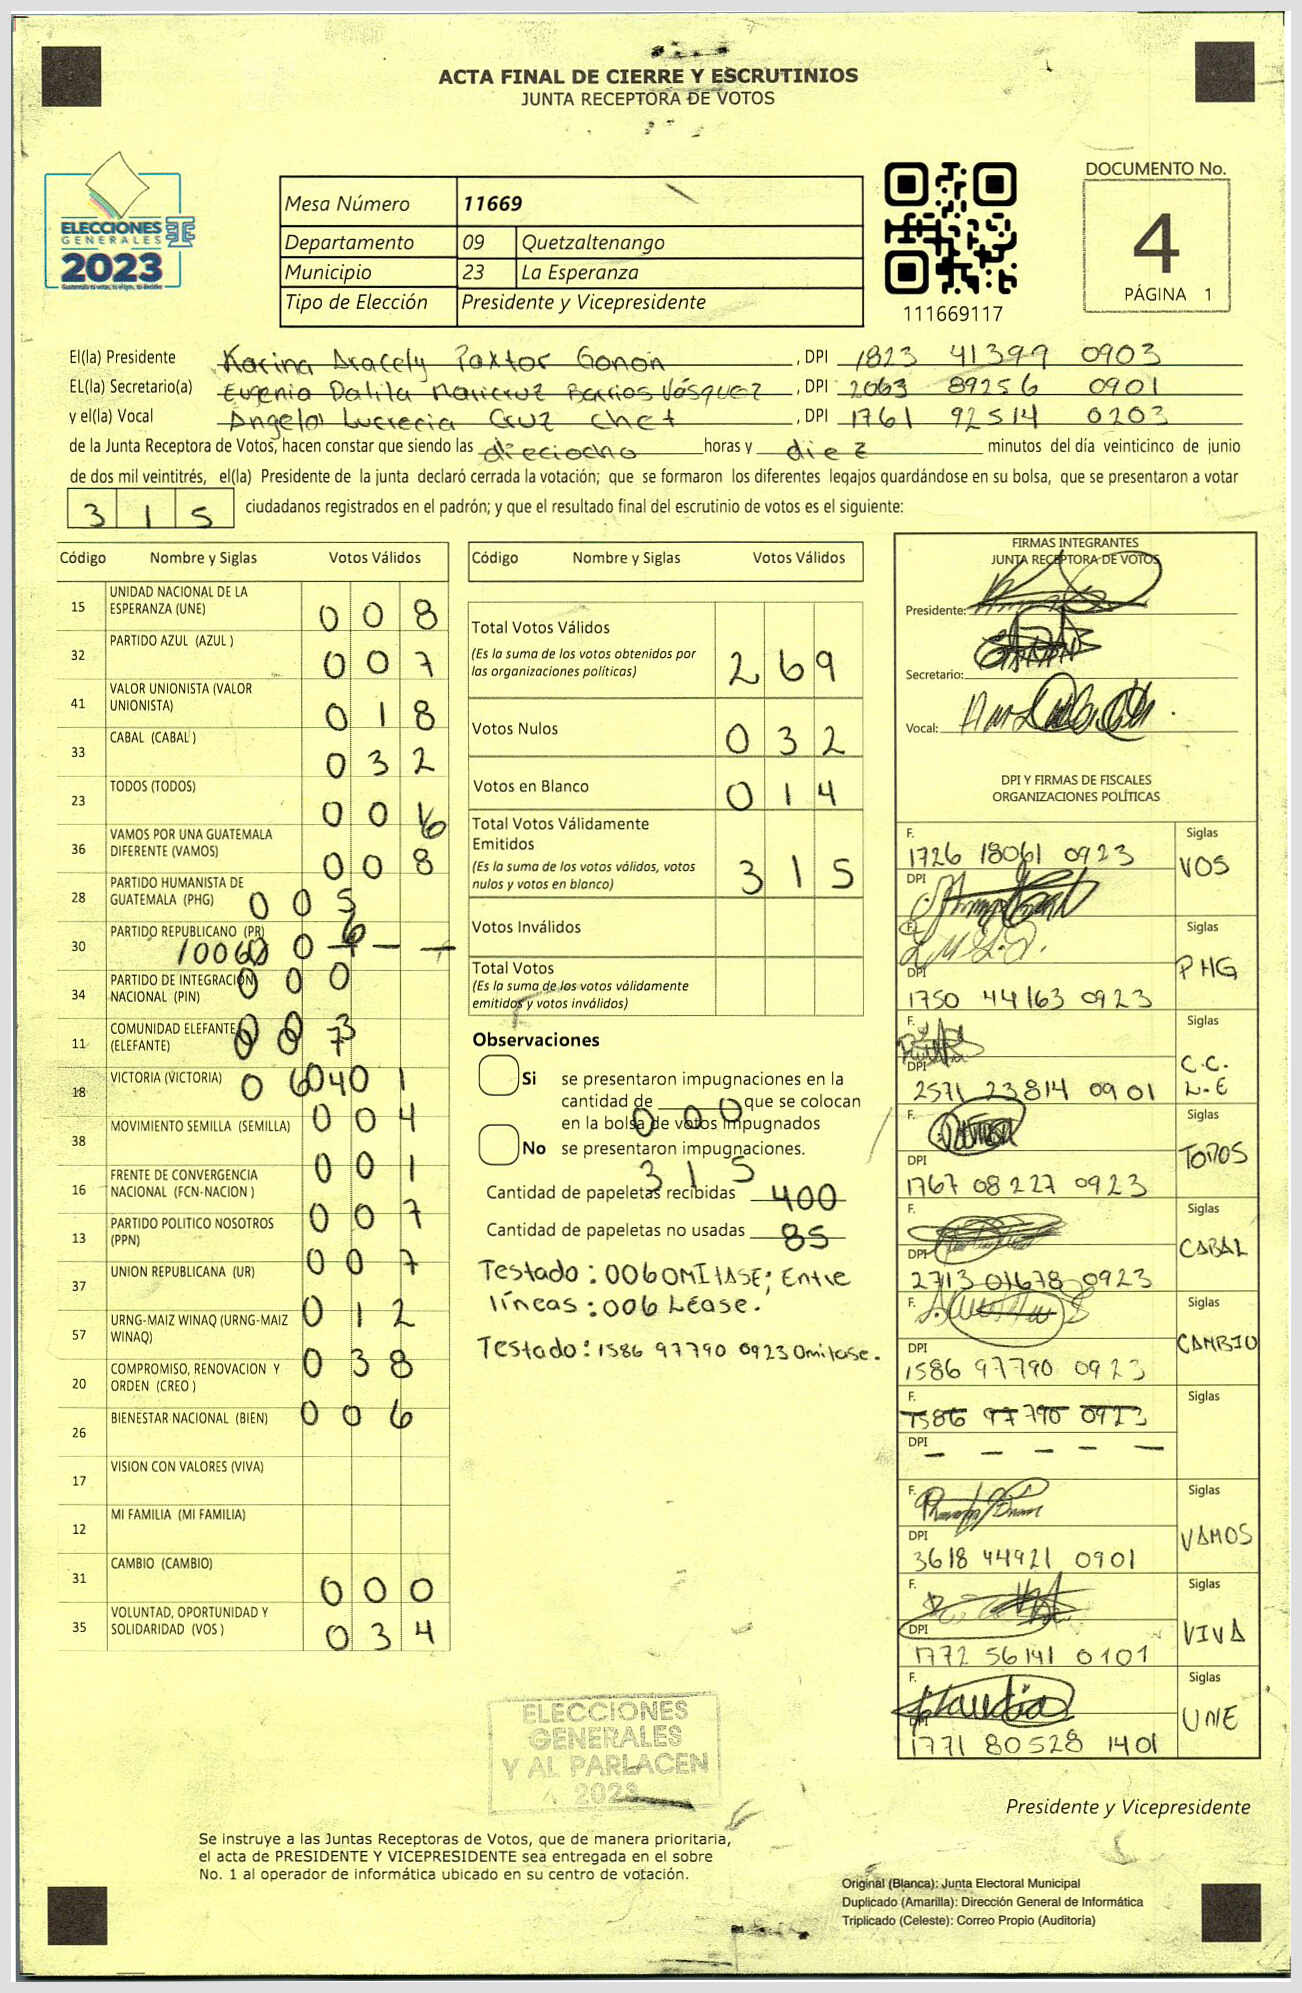 ACTA FINAL DE CIERRE Y ESCRUTINIOS
JUNTA RECEPTORA DE VOTOS
ELECCIONES
GENERALES
2023
Mesa Número 11669
Departamento 09 Quetzaltenango
Municipio 23 La Esperanza
Tipo de Elección Presidente y Vicepresidente
111669117
DOCUMENTO No.
4
PÁGINA 1
El(la) Presidente Karina Aracely Paxtor Gonon, DPI 1823 41399 0903
EL(la) Secretario(a) Eugenia Dalila Maricruz Barrios Vásquez, DPI 2063 89256 0901
y el(la) Vocal Angela Lucrecia Cruz Chet, DPI 1761 92514 0203
de la Junta Receptora de Votos, hacen constar que siendo las dieciocho horas y diez minutos del día veinticinco de junio
de dos mil veintitrés, el(la) Presidente de la junta declaró cerrada la votación; que se formaron los diferentes legajos guardándose en su bolsa, que se presentaron a votar
315 ciudadanos registrados en el padrón; y que el resultado final del escrutinio de votos es el siguiente:
Código Nombre y Siglas Votos Válidos
15 UNIDAD NACIONAL DE LA ESPERANZA (UNE) 008
32 PARTIDO AZUL (AZUL ) 007
41 VALOR UNIONISTA (VALOR UNIONISTA) 018
33 CABAL (CABAL ) 032
23 TODOS (TODOS) 00
36 VAMOS POR UNA GUATEMALA DIFERENTE (VAMOS) 008
28 PARTIDO HUMANISTA DE GUATEMALA (PHG) 005
30 PARTIDO REPUBLICANO (PR)
34 PARTIDO DE INTEGRACION NACIONAL (PIN) 000
11 COMUNIDAD ELEFANTE (ELEFANTE)
18 VICTORIA (VICTORIA)
38 MOVIMIENTO SEMILLA (SEMILLA) 004
16 FRENTE DE CONVERGENCIA NACIONAL (FCN-NACION ) 001
13 PARTIDO POLITICO NOSOTROS (PPN) 007
37 UNION REPUBLICANA (UR) 007
57 URNG-MAIZ WINAQ (URNG-MAIZ WINAQ) 012
20 COMPROMISO, RENOVACION Y ORDEN (CREO ) 038
26 BIENESTAR NACIONAL (BIEN) 006
17 VISION CON VALORES (VIVA)
12 MI FAMILIA (MI FAMILIA)
31 CAMBIO (CAMBIO) 000
35 VOLUNTAD, OPORTUNIDAD Y SOLIDARIDAD (VOS ) 034
Código Nombre y Siglas Votos Válidos
Total Votos Válidos
(Es la suma de los votos obtenidos por
las organizaciones políticas) 269
Votos Nulos 032
Votos en Blanco 014
Total Votos Válidamente
Emitidos
(Es la suma de los votos válidos, votos
nulos y votos en blanco) 315
Votos Inválidos
Total Votos
(Es la suma de los votos válidamente
emitidos y votos inválidos)
Observaciones
Si se presentaron impugnaciones en la
cantidad de 000 que se colocan
en la bolsa de votos impugnados
No se presentaron impugnaciones.
315
Cantidad de papeletas recibidas 400
Cantidad de papeletas no usadas 85
Testado: 006 OMITASE; Entre
líneas: 006 Léase.
Testado: 1586 97790 0923 Omitase.
FIRMAS INTEGRANTES
JUNTA RECEPTORA DE VOTOS
Presidente:
Secretario:
Vocal:
DPI Y FIRMAS DE FISCALES
ORGANIZACIONES POLÍTICAS
F. Siglas
1726 18061 0923 VOS
DPI
F. Siglas
DPI PHG
1750 44163 0923
F. Siglas
DPI C.C.
2571 23814 0901 L.E
F. Siglas
DPI TODOS
1767 08227 0923
F. Siglas
DPI CABAL
2713 01678 0923
F. Siglas
DPI CAMBIO
1586 97790 0923
F. Siglas
1586 97790 0923
DPI
F. Siglas
DPI VAMOS
3618 44921 0901
F. Siglas
DPI VIVA
1772 56141 0101
F. Siglas
Claudia
DPI UNE
1771 80528 1401
ELECCIONES
GENERALES
Y AL PARLACEN
2023
Presidente y Vicepresidente
Se instruye a las Juntas Receptoras de Votos, que de manera prioritaria,
el acta de PRESIDENTE Y VICEPRESIDENTE sea entregada en el sobre
No. 1 al operador de informática ubicado en su centro de votación.
Original (Blanca): Junta Electoral Municipal
Duplicado (Amarilla): Dirección General de Informática
Triplicado (Celeste): Correo Propio (Auditoría)